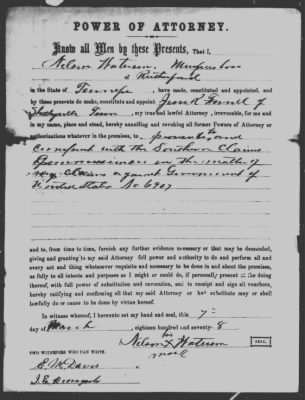 POWER OF ATTORNEY.
Know all Men by these Presents, That I,
Nelson Waterson
Rutherford
in the State of Tennessee, have made, constituted and appointed, and
by these presents do make, constitute and appoint of
Tenn, my true and lawful Attorney, irrevocable, for me and
in my name, place and stead, hereby annulling and revoking all former Powers of Attorney or
authorizations whatever in the premises, to and
with the Southern Claims
in the matter of
my Claim against Government of
United States No 6907
and to, from time to time, furnish any further evidence necessary or that may be demanded,
giving and granting to my said Attorney full power and authority to do and perform all and
every act and thing whatsoever requisite and necessary to be done in and about the premises,
as fully to all intents and purposes as I might or could do, if personally present at the doing
thereof, with full power of substitution and revocation, and to receipt and sign all vouchers,
hereby ratifying and confirming all that my said Attorney or his substitute may or shall
lawfully do or cause to be done by virtue hereof.
In witness whereof, I hereunto set my hand and seal, this 7
day of March, eighteen hundred and seventy-8
his
Nelson X Waterson SEAL.
mark
TWO WITNESSES WHO CAN WRITE.
E. M. Davis